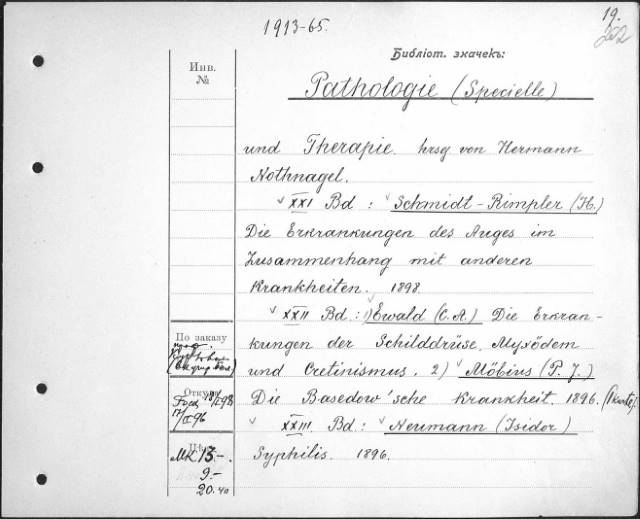 1913-65.
19.
202
Библіот. значекъ:
Инв.
№
Pathologie (Specielle)
und Therapie. hrsg von Hermann
Nothnagel.
XXI Bd : Schmidt-Rimpler (H.)
Die Erkrankungen des Auges im
Zusammenhang mit anderen
Krankheiten. 1898.
XXII Bd.: 1) Ewald (C. A.) Die Erkran-
kungen der Schilddrüse, Myxödem
und Cretinismus. 2) Möbius (P. J.)
Die Basedow'sche Krankheit. 1896. (1 Karte)
XXIII. Bd.: Neumann (Isidor)
Syphilis. 1896.
По заказу
проф.
Отку
17/II 96
Мк 13.-
9.-
20.40